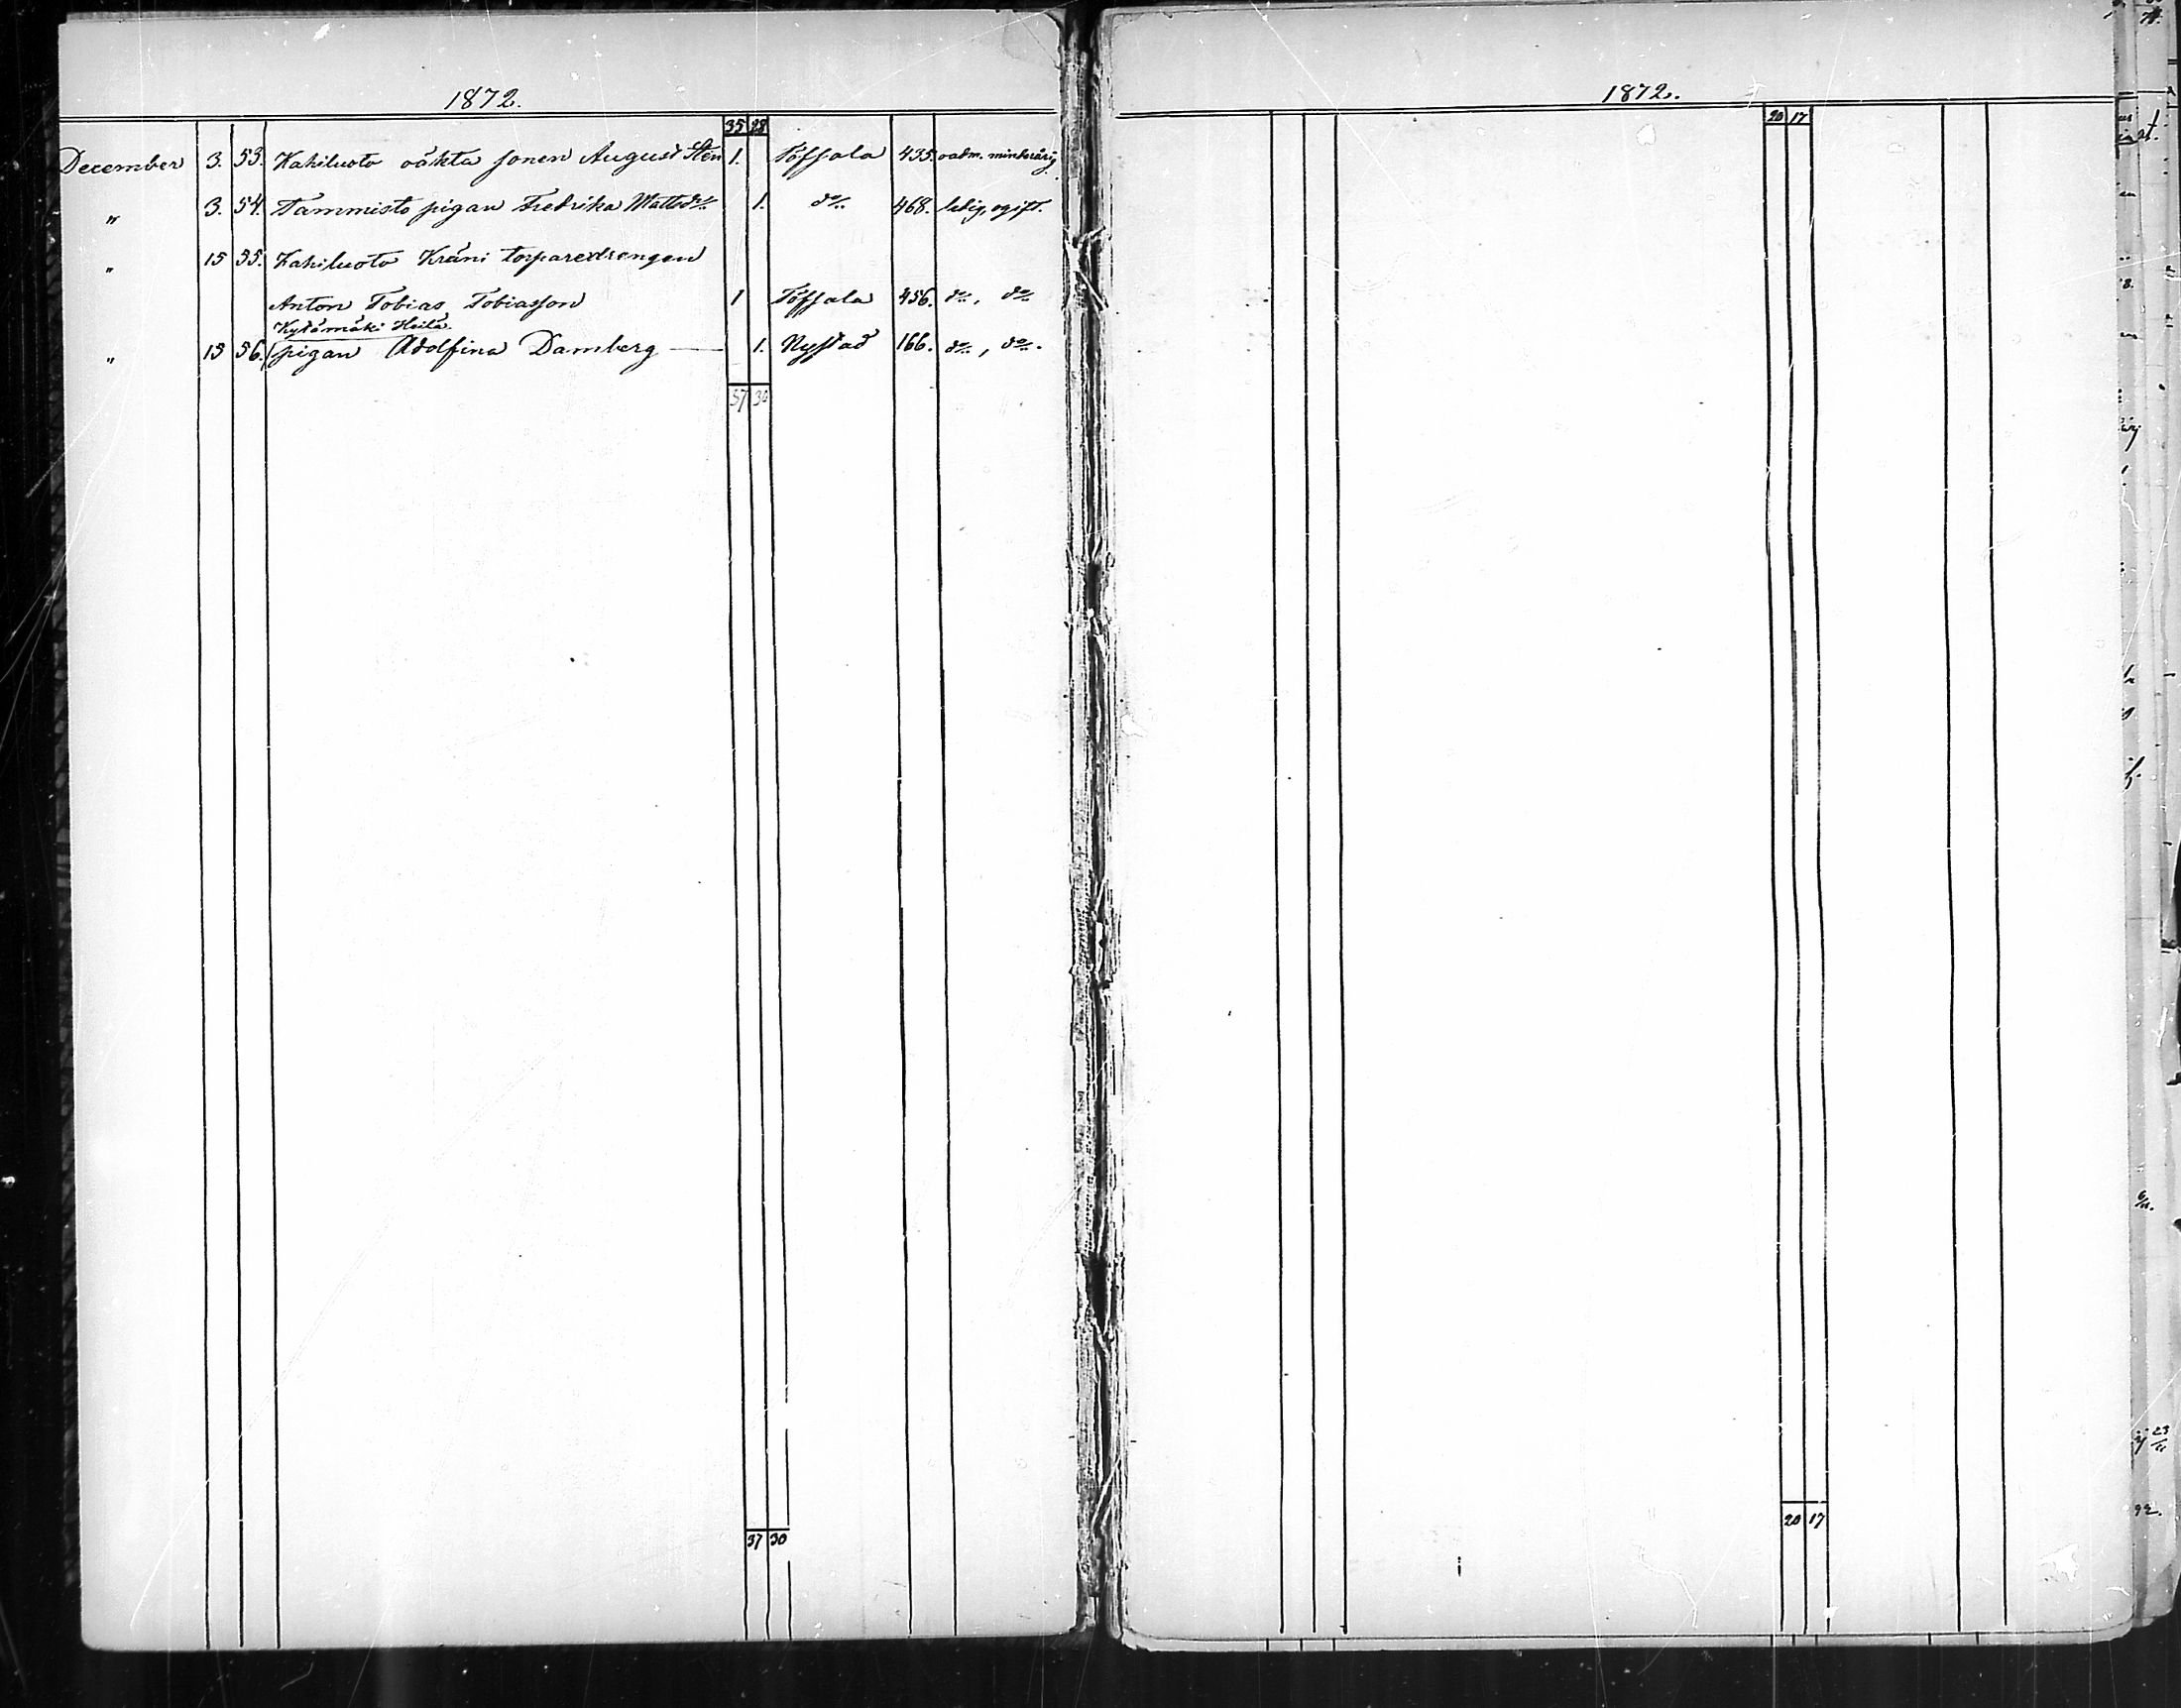 1872.
35 28
December 3. 53. Kahiluoto oäkta sonen August Sten 1. Töfsala 435. oadm. minderårig
" 3. 54. Tammisto pigan Fredrika Mattsdr 1. do 468. ledig, ogift.
" 15 55. Kahiluoto Kräni torparedrengen
Anton Tobias Tobiasson 1 Töfsala 456. do, do
Kytämäki Heilä
" 15 56. pigan Adolfina Damberg — 1. Nystad 166. do, do.
37 30
37 30
1872.
20 17
20 17